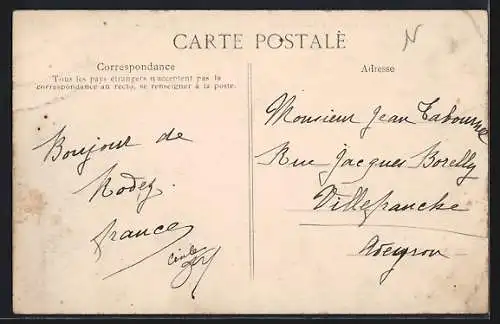 CARTE POSTALE
N
Correspondance
Tous les pays étrangers n'acceptent pas la
correspondance au recto, se renseigner à la poste.
Bonjour de
Rodez.
france
Adresse
Monsieur Jean
Rue Jacques Borelly
Villefranche
Aveyron